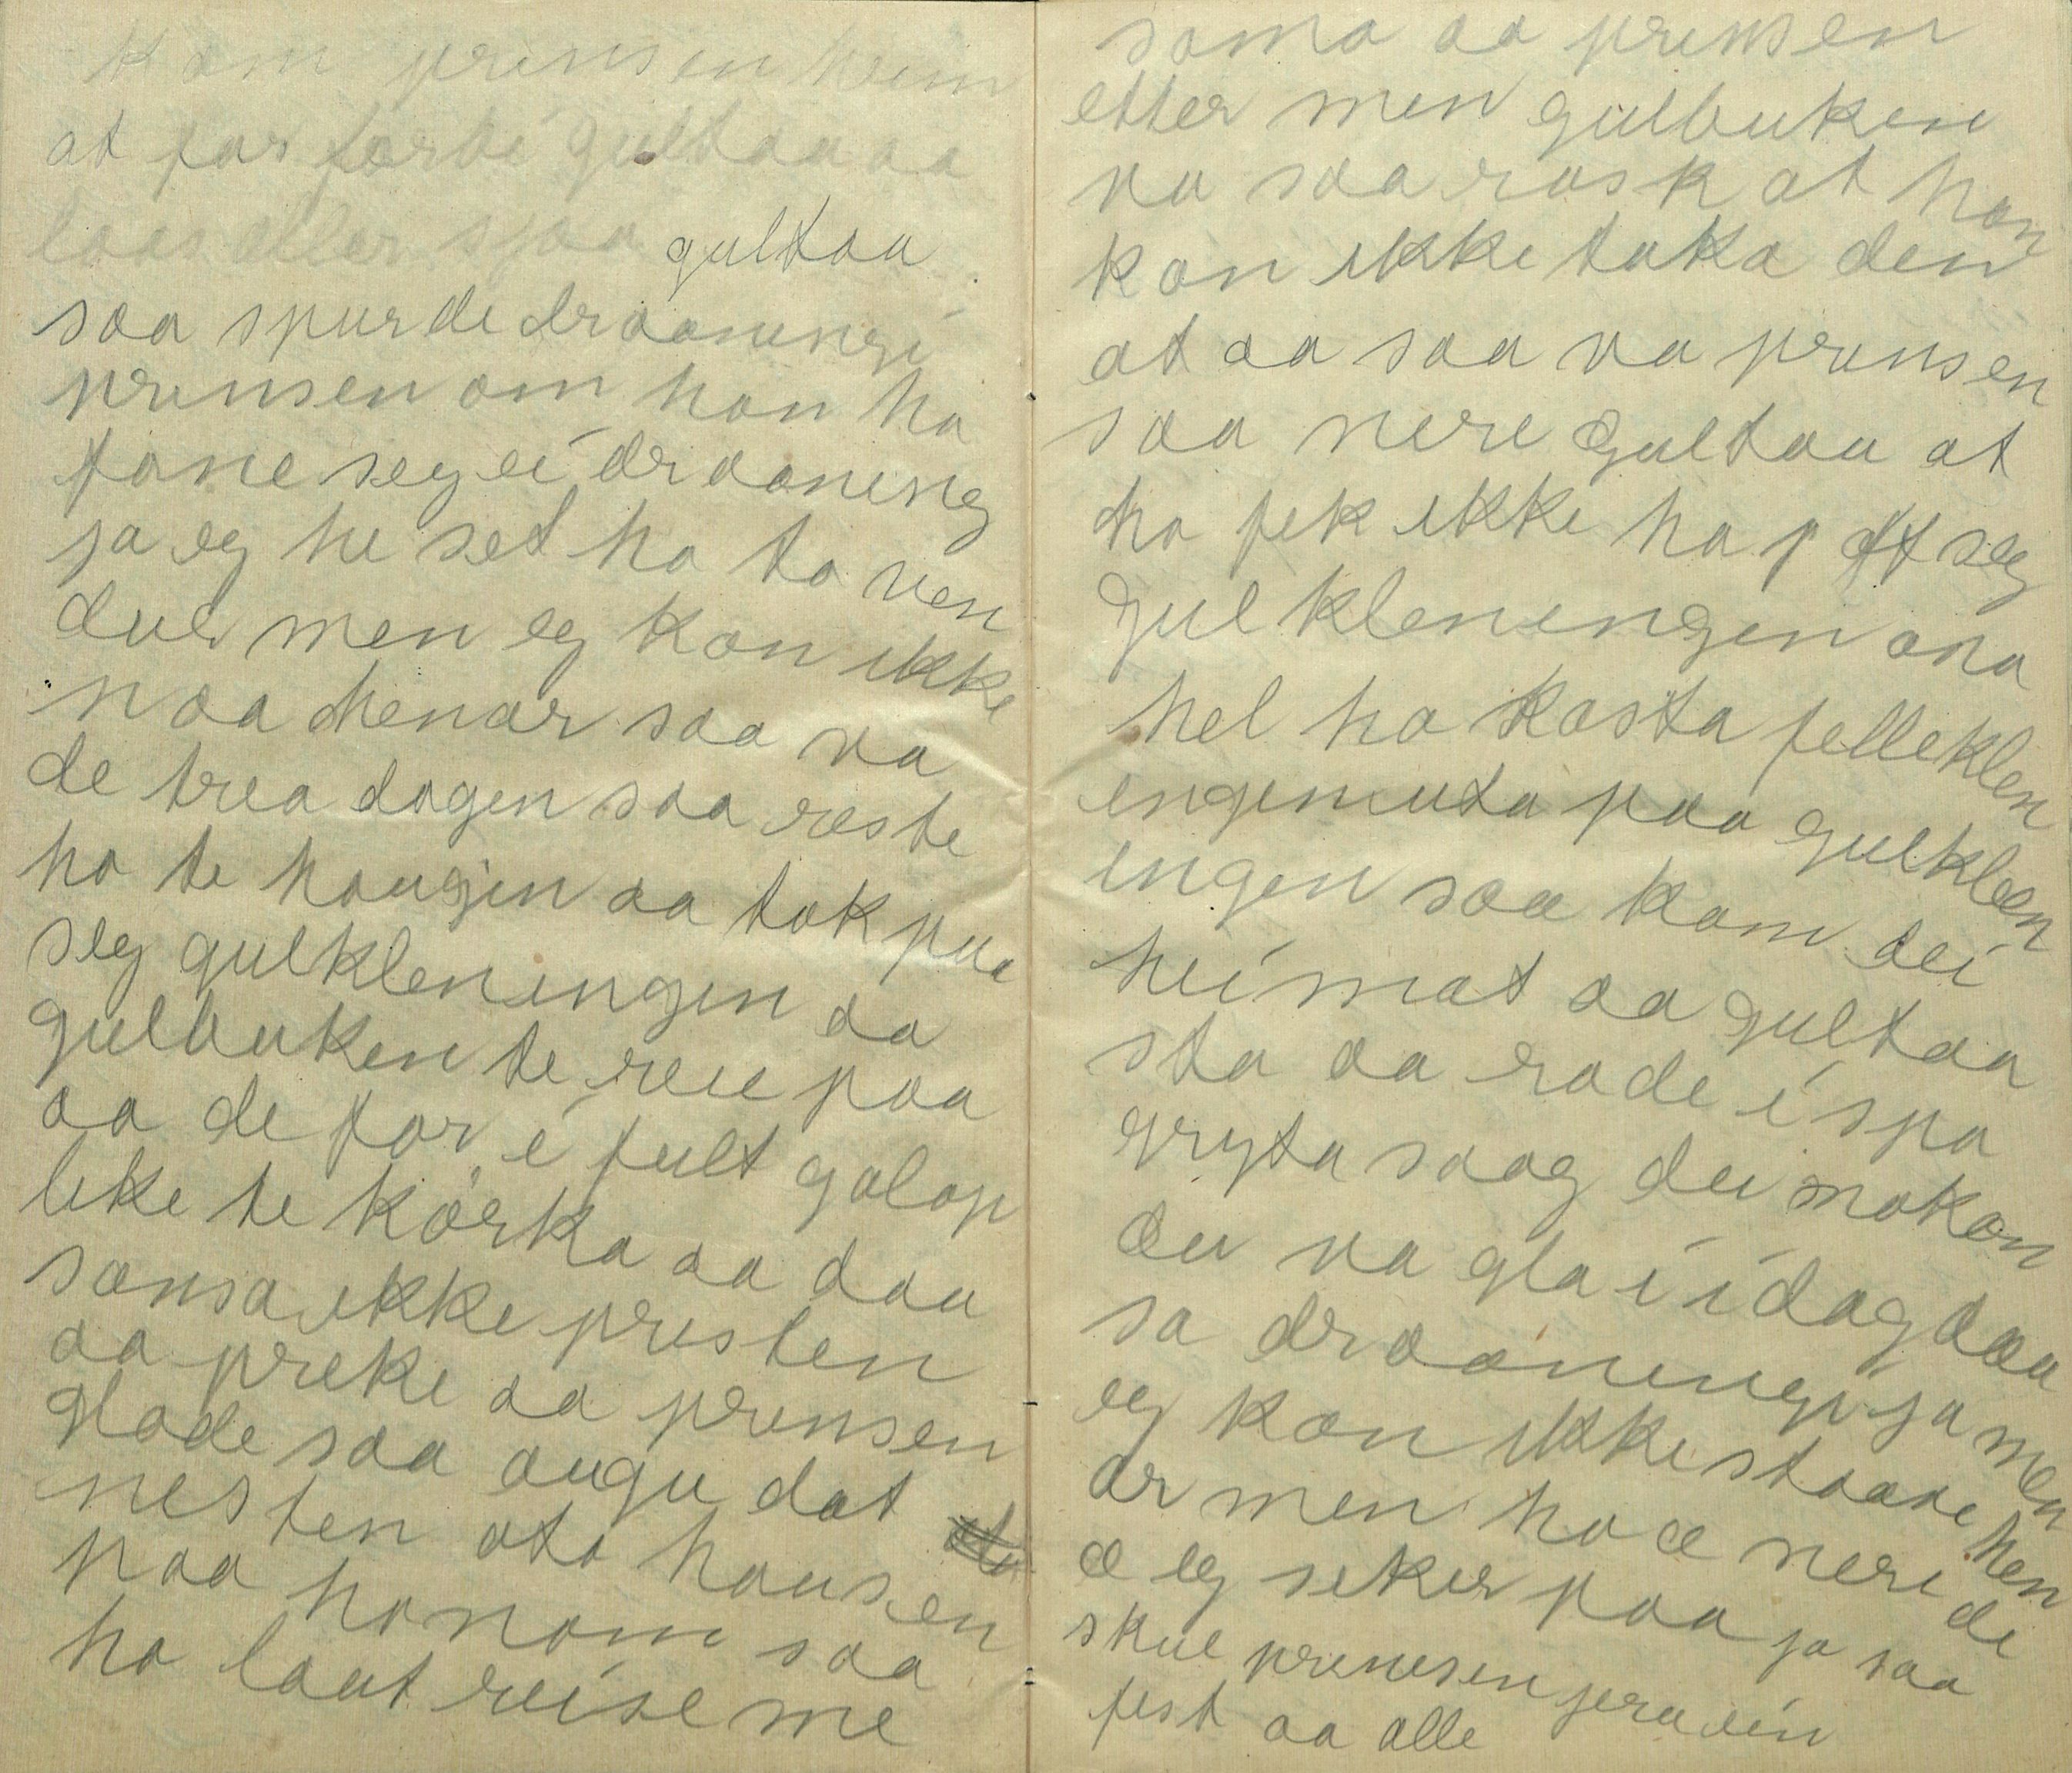 kom prinsen heim
at for forbi gultaa aa
laas eller sjaa gultaa
saa spurde draaningi
prinsen om han ha
fone seg ei draaning
ja eg he set ho to ven
dul men eg kan ikke
naa henar saa va
de trea dagen saa reste
ho te haugjen aa tok paa
seg gulkleningen aa
gulbuken te reie paa
aa de for i fult galop
like te kørka aa daa
sansa ikke presten
aa preke aa prinsen
glade saa augu dat
nesten ota hausen
paa honom saa
ho laut reise me
soma aa prinsen
etter men gulbuken
va saa rask at han
kan ikke taka den
at aa saa va prinsen
saa nere gultaa at
ho fek ikke ha p aff seg
gul kleningen ana
hel ho kasta felleklen
ingjenuta paa gulkleen
ingen saa kom dei
heimat aa gultaa
sta aa rade i spa
gryta saag dei makan
du va gla i idag daa
sa draaningi ja men
eg kan ikke staane hen
ar men ho æ nere de
æ eg seker paa ja saa
skul prinesen jera ein
fest aa alle